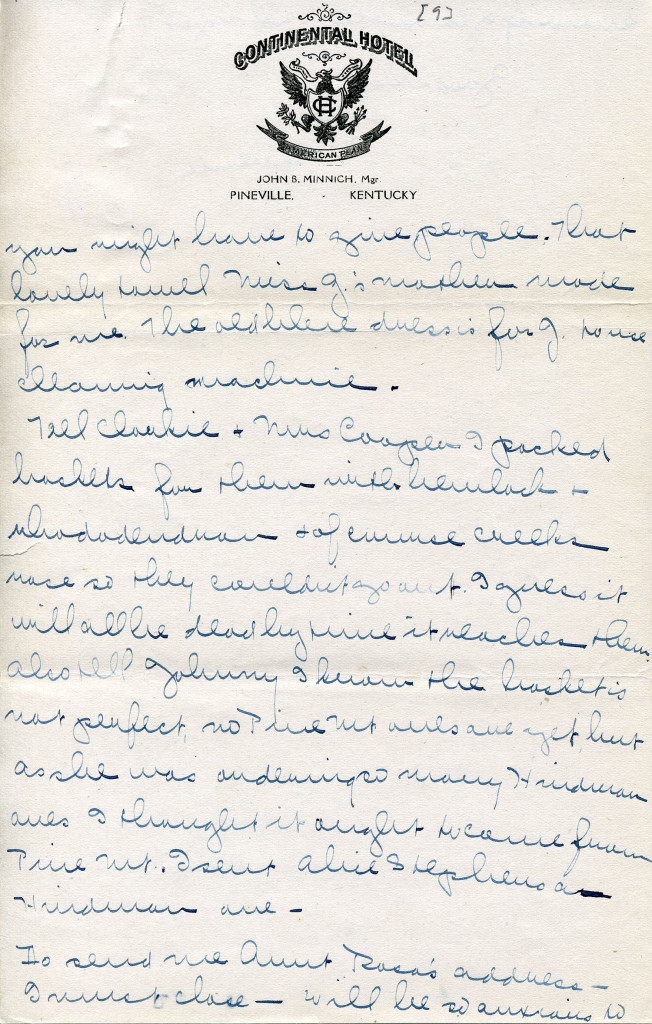 [9]
CONTINENTAL HOTEL
CH
AMERICAN PLAN
JOHN B. MINNICH, Mgr.
PINEVILLE, - KENTUCKY
you might have to give people. That
lovely towell Miss G.'s mother made
for me. The old blue dress is for J. house
cleaning machine.
Tell Clarkie + Mrs Cooper I packed
baskets for them with hemlock +
rhododendron + of course creeks
rose so they couldn't go out. I guess it
will all be dead by time it reaches them.
also tell Johnny I know the basket is
not perfect, no Pine Mt ones are yet, but
as she was ordering so many Hindman
ones I thought it ought to come from
Pine Mt. I sent Alice Stephens a
Hindman one -
Do send me Aunt Rosa's address -
I must close - will be so anxious to